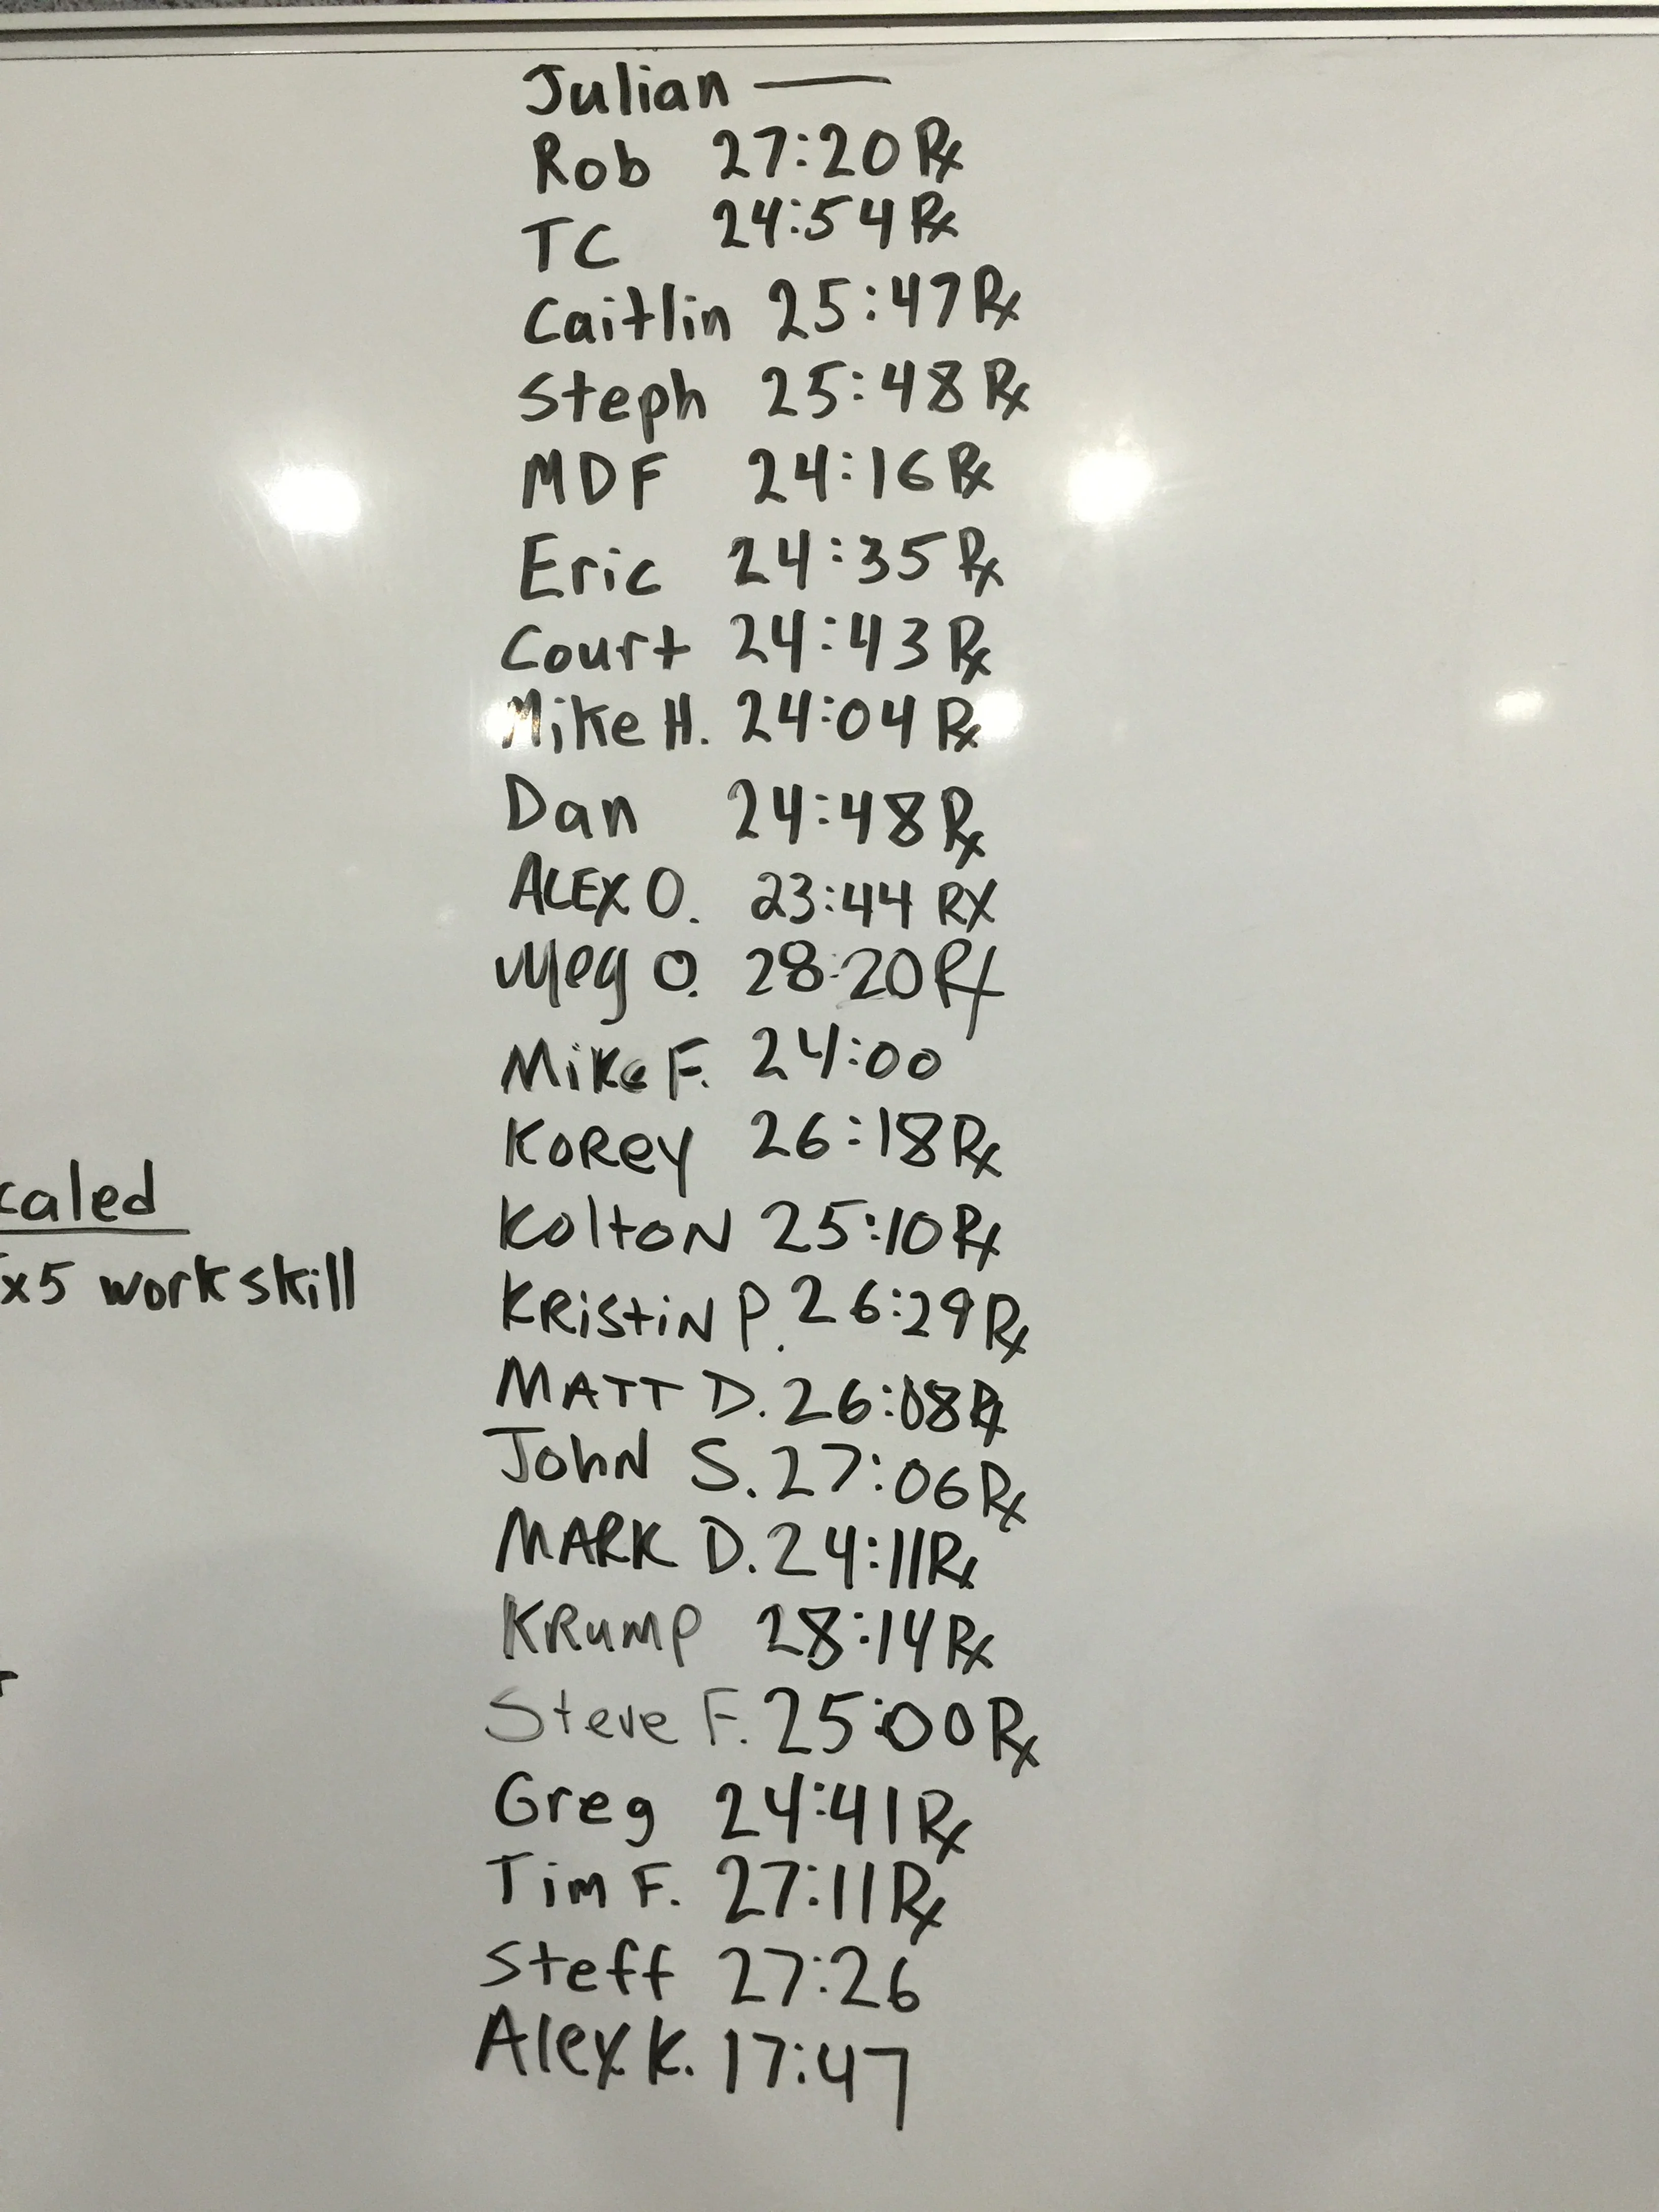 Julian —
Rob 27:20 Rx
TC 24:54 Rx
Caitlin 25:47 Rx
Steph 25:48 Rx
MDF 24:16 Rx
Eric 24:35 Rx
Court 24:43 Rx
Mike H. 24:04 Rx
Dan 24:48 Rx
ALEX O. 23:44 RX
Meg O. 28:20 Rx
Mike F. 24:00
KoRey 26:18 Rx
KoltoN 25:10 Rx
KRistiN P. 26:29 Rx
MATT D. 26:08 Rx
JohN S. 27:06 Rx
MARK D. 24:11 Rx
KRumP 28:14 Rx
Steve F. 25:00 Rx
Greg 24:41 Rx
Tim F. 27:11 Rx
Steff 27:26
Alex K. 17:47
caled
x5 work skill